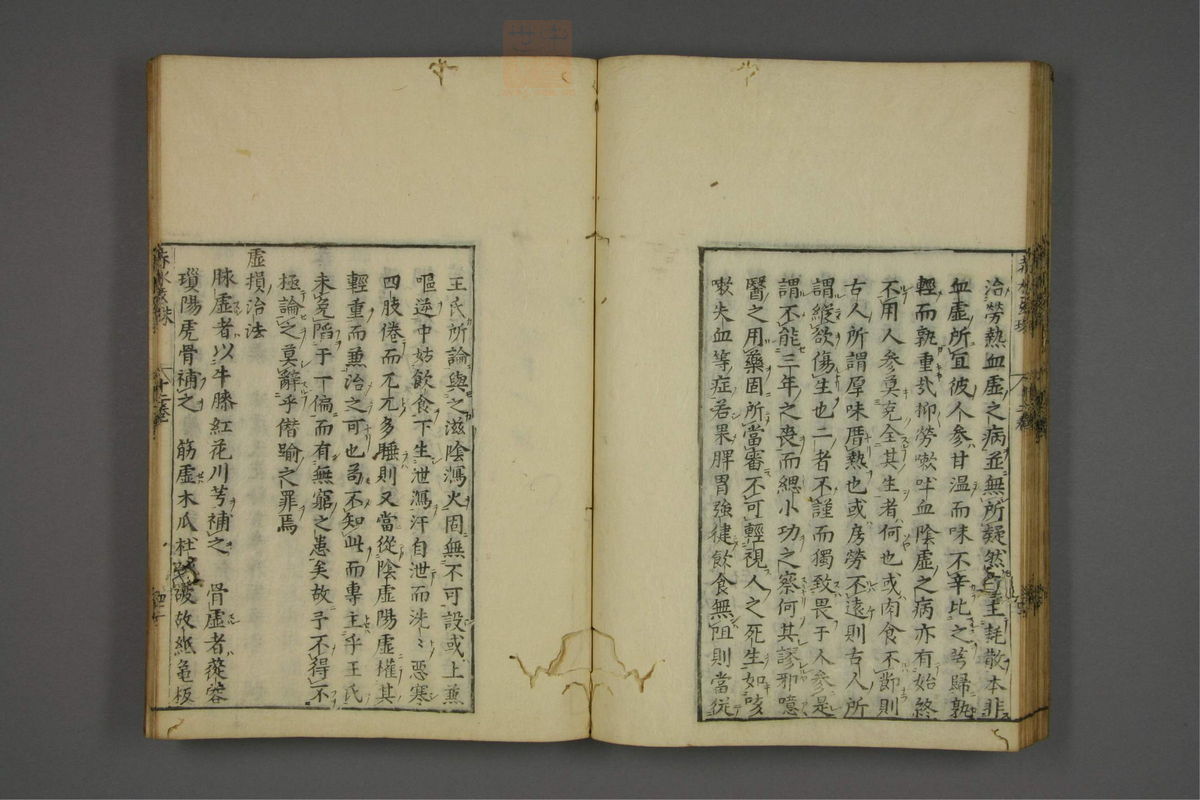 治勞熱血虛之病並無所疑然芎主耗散本非
血虛所宜彼人參甘温而味不辛比之芎歸孰
輕而孰重哉抑勞嗽吐血陰虛之病亦有始終
不用人參莫克全其生者何也或肉食不節則
古人所謂厚味厝熱也或房勞不遠則古人所
謂縱欲傷生也二者不謹而獨致畏于人參是
謂不能三年之喪而緦小功之察何其謬邪噫
醫之用藥固所當審不可輕視人之死生如咳
嗽失血等症若果脾胃強健飲食無阻則當從
王氏所論與之滋陰瀉火固無不可設或上兼
嘔逆中妨飲食下生泄瀉汗自泄而洗〻惡寒
四肢倦而兀兀多睡則又當從陰虛陽虛權其
輕重而兼治之可也苟不知此而專主乎王氏
未免陷于一偏而有無窮之患矣故予不得不
極論之莫辭乎僭踰之罪焉
虛損治法
脉虛者以牛膝紅花川芎補之 骨虛者蓯蓉
瑣陽虎骨補之 筋虛木瓜杜破故紙龜板